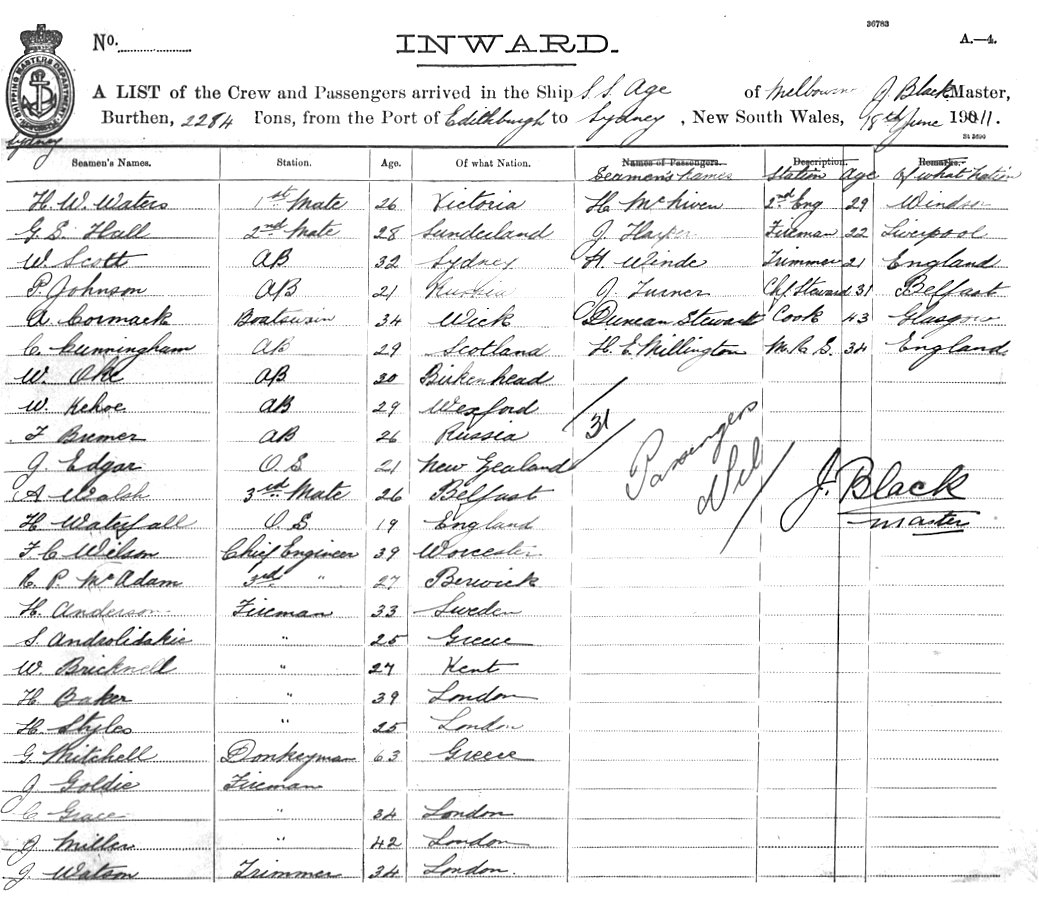 36783
No. INWARD. A.—4.
A LIST of the Crew and Passengers arrived in the Ship S.S. Age of Melbourne J. Black Master,
Burthen, 2284 Tons, from the Port of Edithburgh to Sydney, New South Wales, 18th June 1911.
SHIPPING MASTERS DEPARTMENT
Sydney
Seamen's Names. Station. Age. Of what Nation. Names of Passengers. Description. Remarks.
Seamen's Names Station Age Of what Nation
H. W. Waters 1st Mate 26 Victoria H. McNiven 2nd Eng 29 Windsor
G. S. Hall 2nd Mate 28 Sunderland J. Harper Fireman 22 Liverpool
W. Scott AB 32 Sydney H. Winde Trimmer 21 England
P. Johnson AB 21 Russia J. Turner Chf Steward 31 Belfast
A. Cormack Boatswain 34 Wick Duncan Stewart Cook 43 Glasgow
C. Cunningham AB 29 Scotland H. E. Millington M.R.S. 34 England
W. Oke AB 30 Birkenhead
W. Kehoe AB 29 Wexford
F. Bremer AB 26 Russia
J. Edgar O.S. 21 New Zealand
31
Passengers Nil
A Walsh 3rd Mate 26 Belfast
J. Black
Master
H Waterfall O.S 19 England
F. C Wilson Chief Engineer 39 Worcester
R. P. McAdam 3rd " 27 Berwick
H. Anderson Fireman 33 Sweden
S. Androlidakie " 25 Greece
W. Bricknell " 27 Kent
H. Baker " 39 London
H. Styles " 25 London
G. Mitchell Donkeyman 63 Greece
J Goldie Fireman
C Grace " 34 London
J Miller " 42 London
J. Watson Trimmer 34 London.